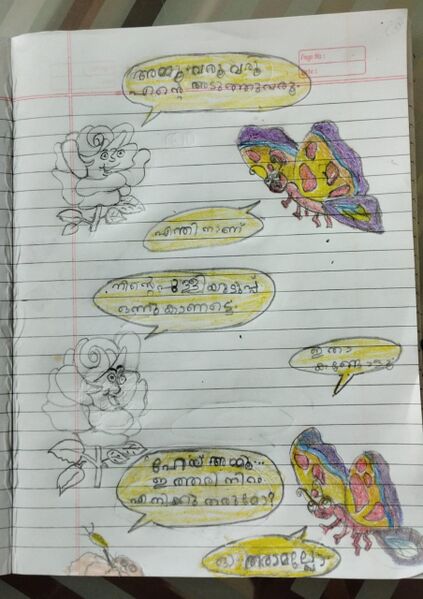 Page No :
Date :
അമ്മൂ വരൂ വരൂ
എന്റെ അടുത്തുവരൂ.
എന്തിനാണ്
നിന്റെ പുള്ളിയുടുപ്പ്
ഒന്നു കാണട്ടെ
ഇതാ
കണ്ടോളൂ
ഹേയ് അമ്മൂ...
ഇത്തിരി നിറം
എനിക്കു തരുമോ?
ഓ തരാമല്ലോ